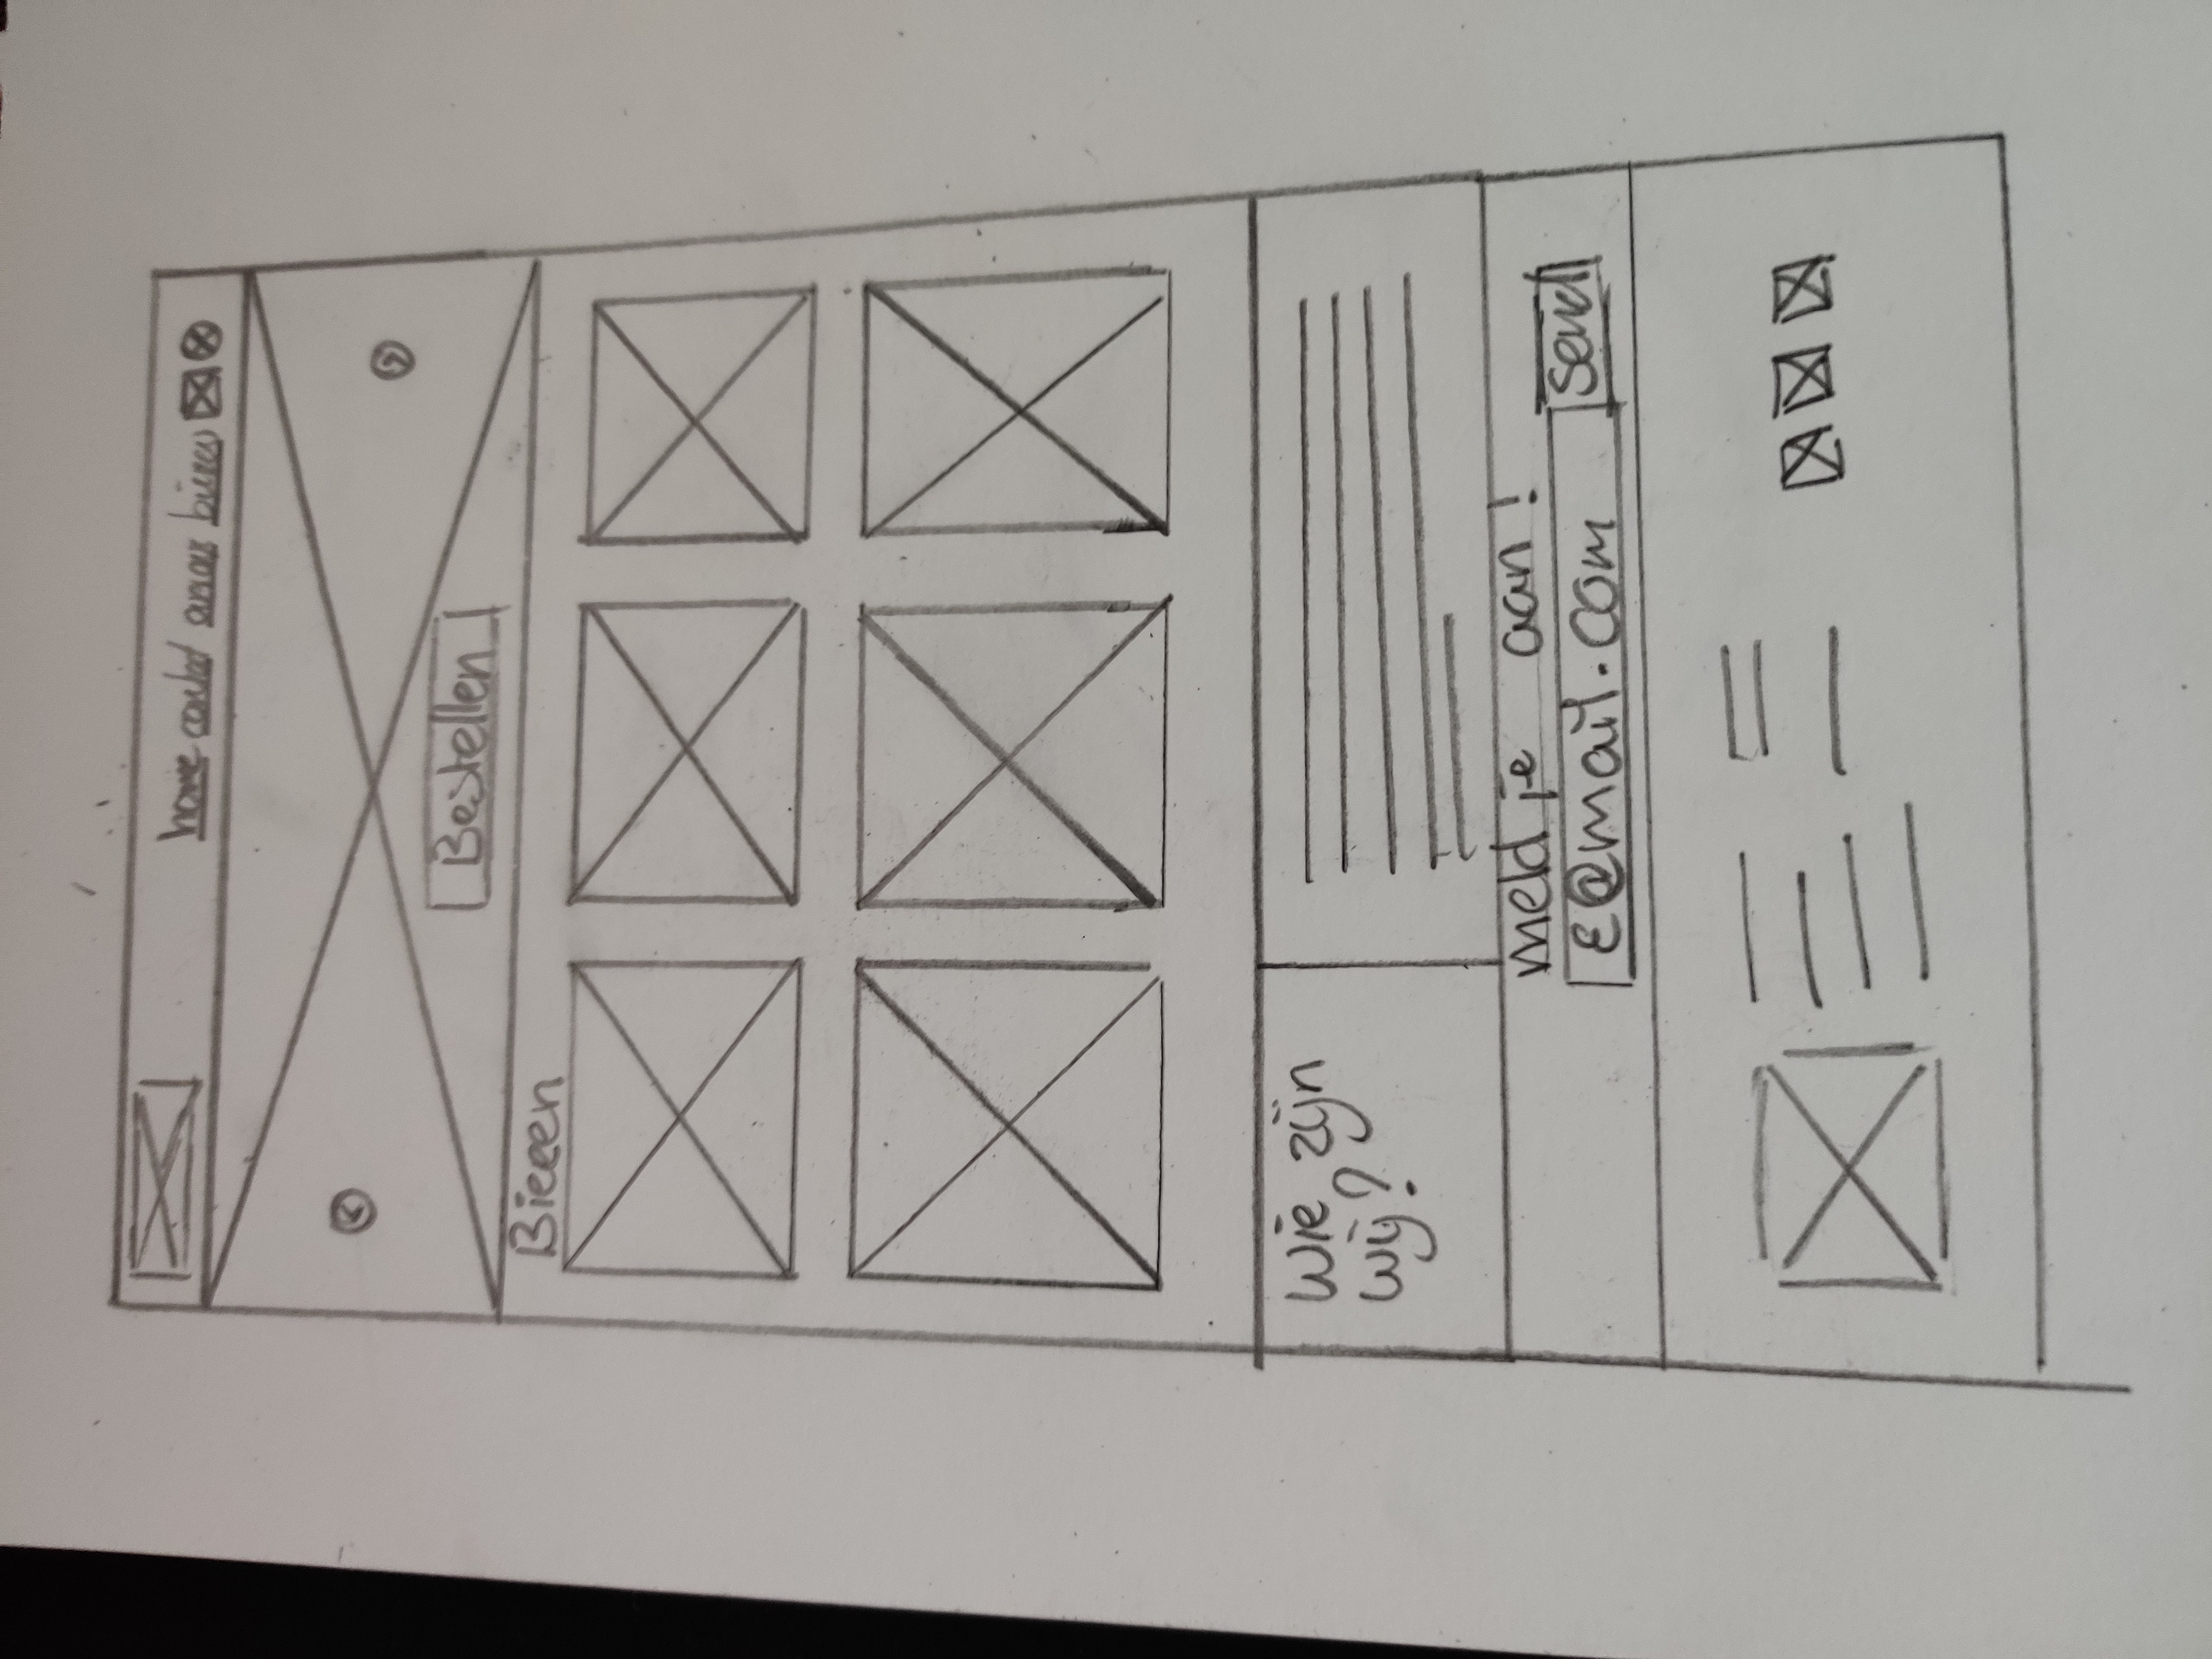 home contact bieren
Bestellen
Bieeen
Wie zijn
wij?
meld je aan!
E@mail.com
Send